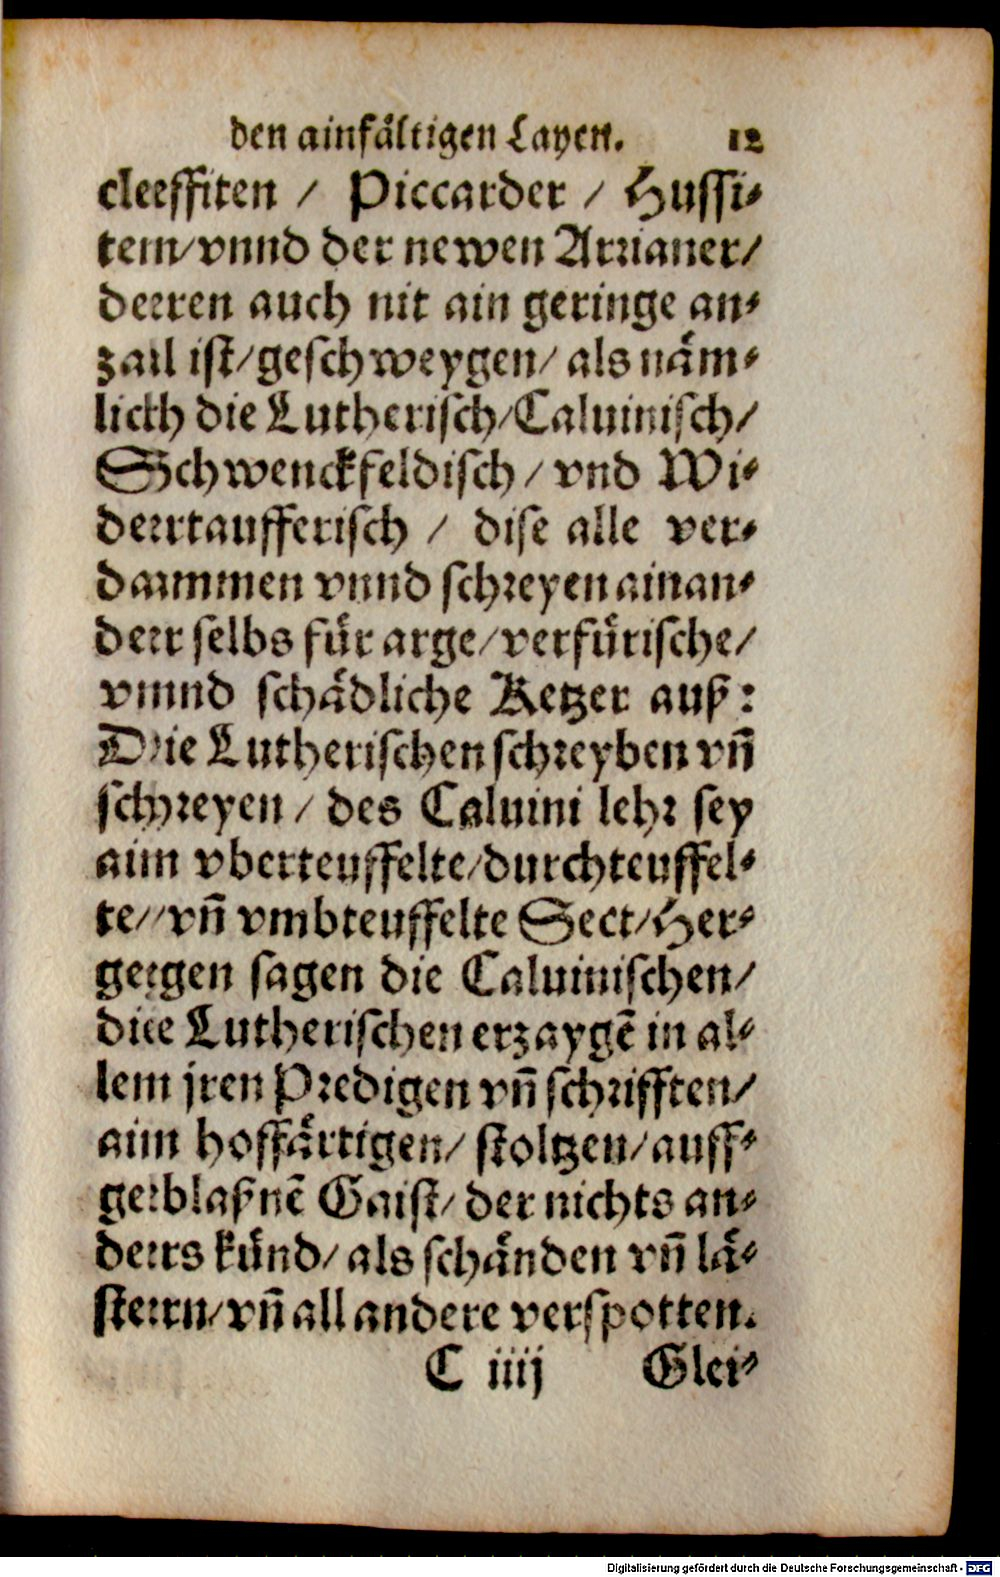 den ainfältigen Layen. 12
cleffiten / Piccarder / Hussi⸗
ten/vnnd der newen Arrianer/
deren auch nit ain geringe an⸗
zail ist/geschweygen/ als näm⸗
lich die Lutherisch/Caluinisch/
Schwenckfeldisch / vnd Wi⸗
dertaufferisch / dise alle ver⸗
dammen vnnd schreyen ainan⸗
der selbs für arge/verfürische/
vnnd schädliche Ketzer auß:
Die Lutherischen schreyben vñ
schreyen / des Caluini lehr sey
ain vberteuffelte/durchteuffel⸗
te/ vñ vmbteuffelte Sect/Her⸗
gegen sagen die Caluinischen/
die Lutherischen erzaygẽ in al⸗
len jren Predigen vñ schrifften/
ain hoffärtigen/ stoltzen/auff⸗
geblaßnẽ Gaist/ der nichts an⸗
ders künd/ als schänden vñ lä⸗
stern/vñ all andere verspotten.
C iiij Glei⸗
Digitalisierung gefördert durch die Deutsche Forschungsgemeinschaft - DFG